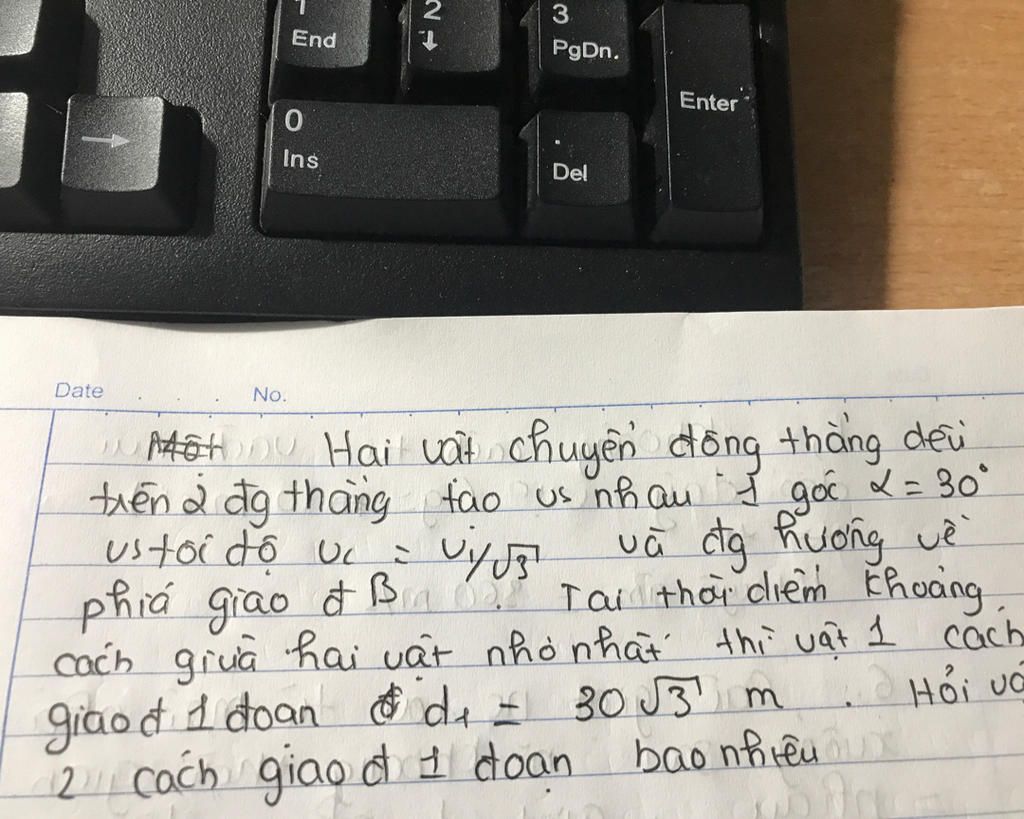 1
End
2
↓
3
PgDn.
Enter
0
Ins
→
.
Del
Date . . . No.
Hai vật chuyển động thẳng đều
trên 2 đg thẳng tạo vs nhau 1 góc α = 30°
vs tốc độ v₂ = v₁/√3 và đg hướng về
phiá giao đ B . Tại thời điểm khoảng
cách giữa hai vật nhỏ nhất thì vật 1 cách
giao đ 1 đoạn d₁ = 30√3 m . Hỏi
2 cách giao đ 1 đoạn bao nhiêu